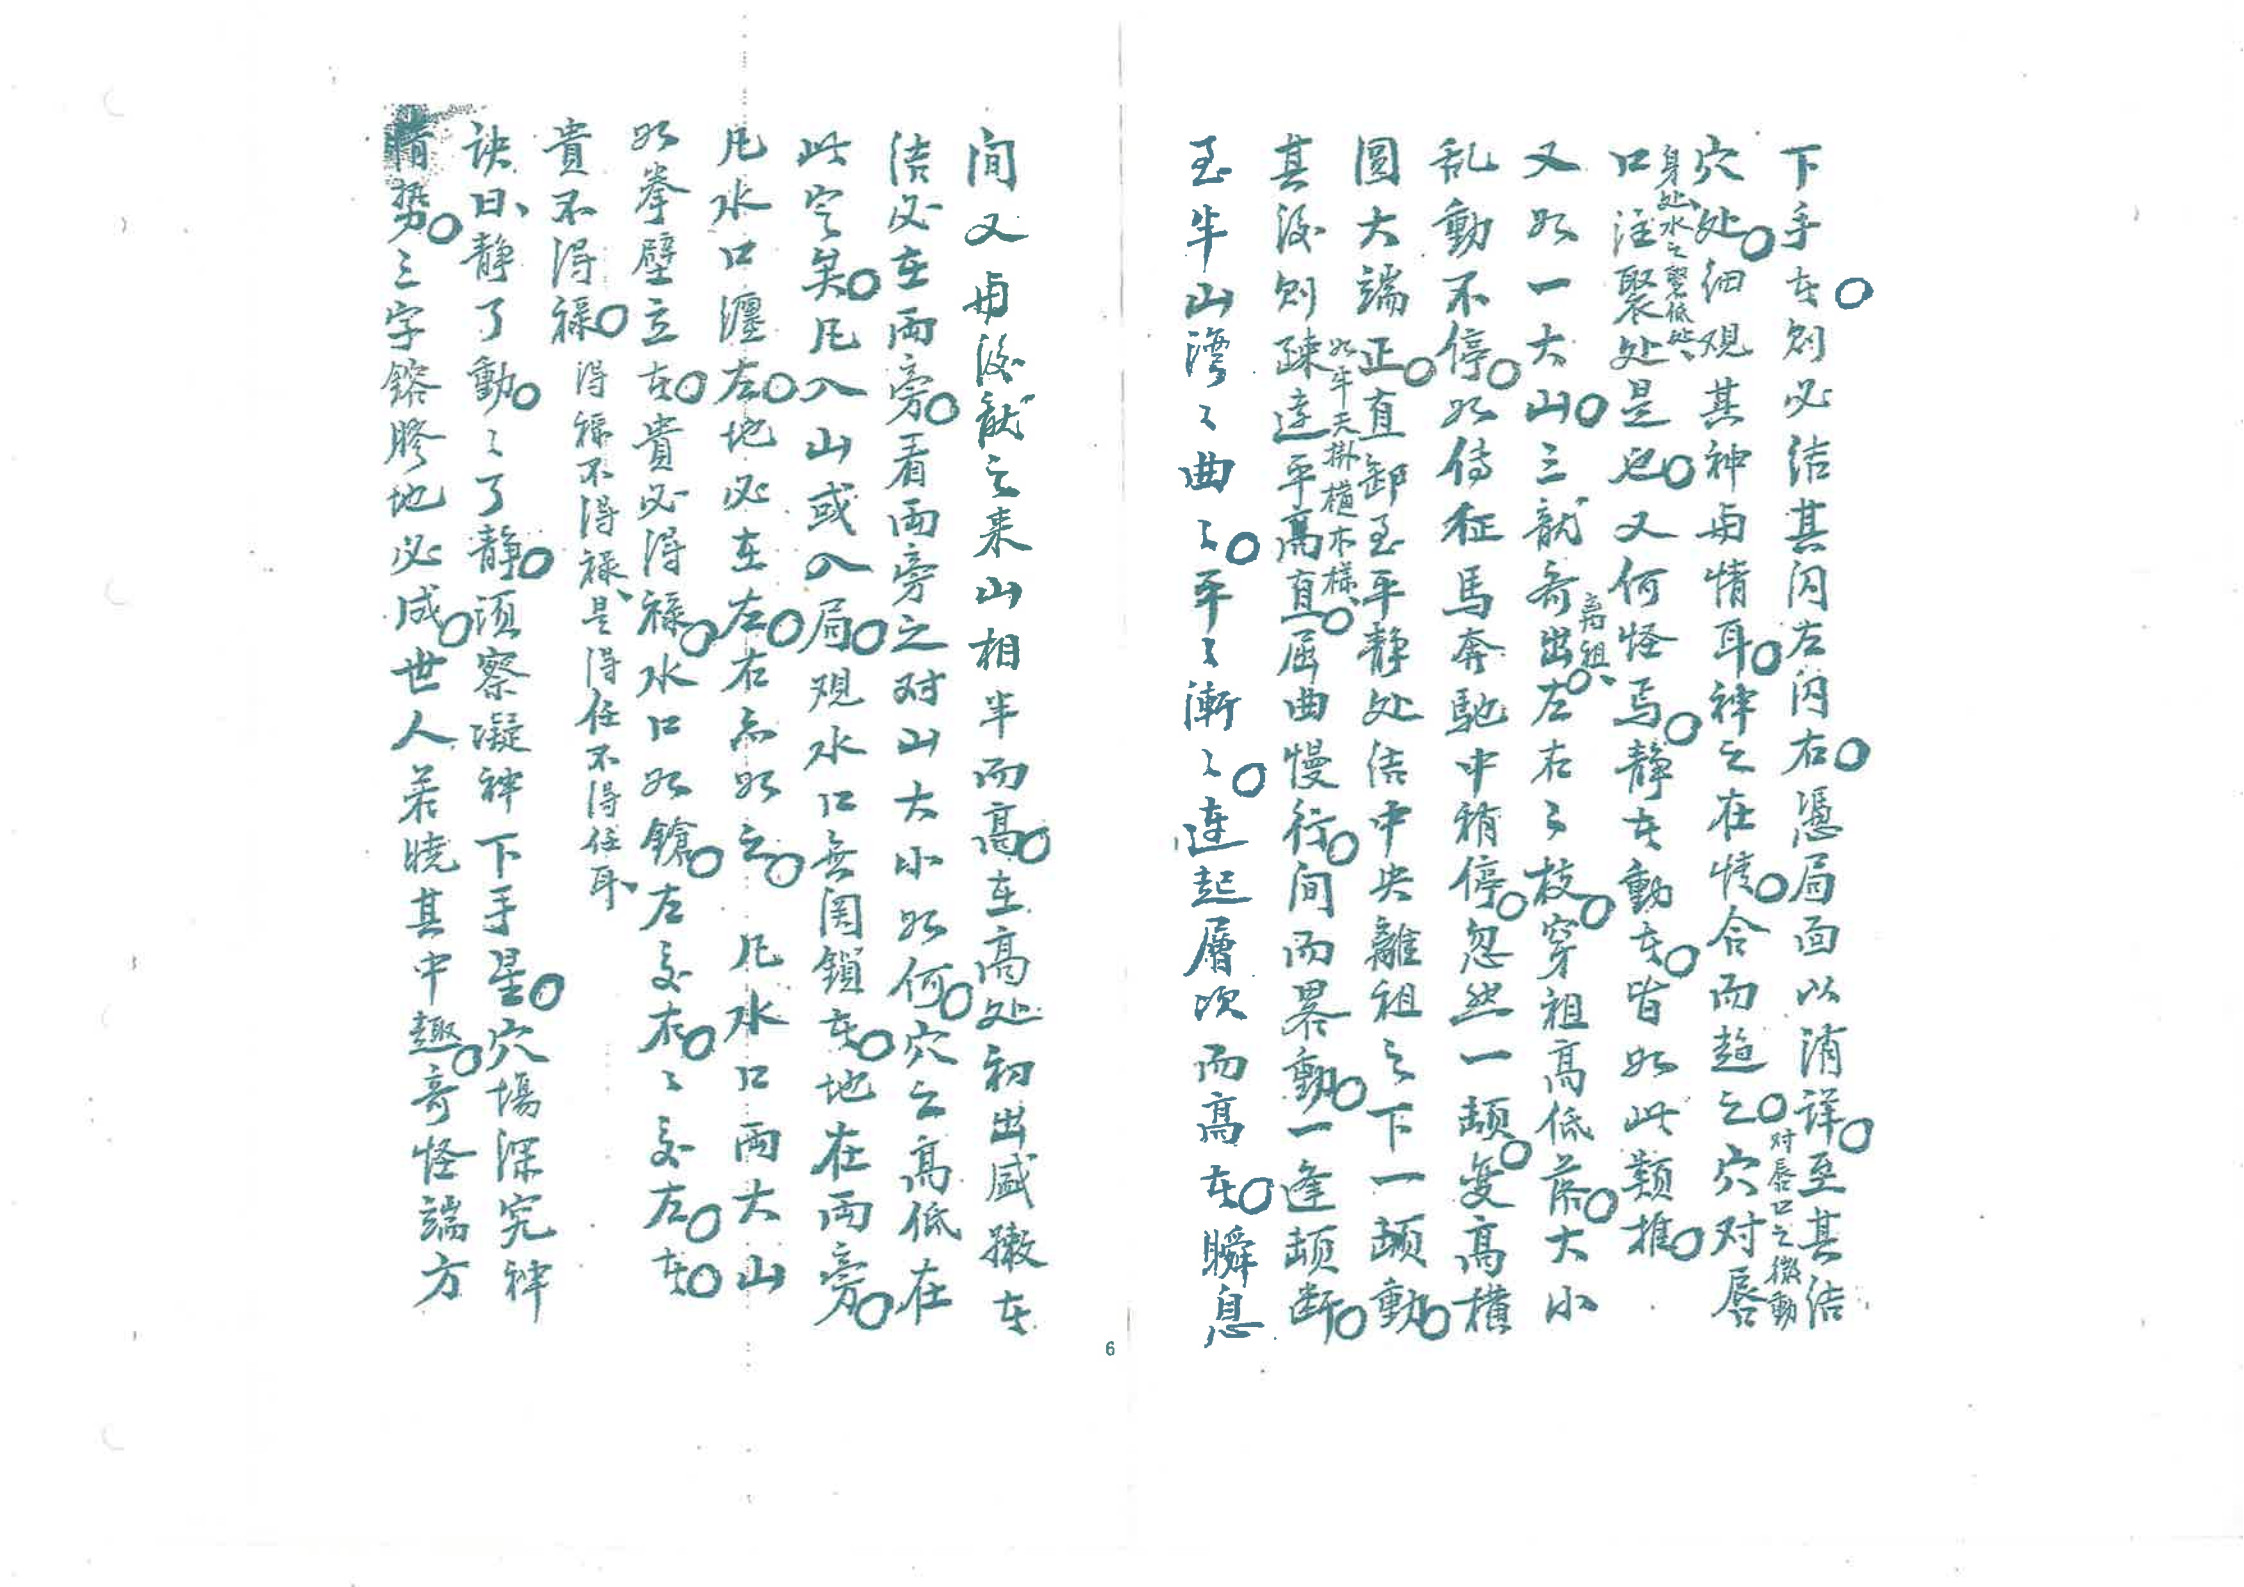 下手者。則必結其閃左閃右。憑局面以消詳。至其結
穴处。細观其神与情耳。神之在情。合而趋之。穴对唇
对唇口之微動
身处、水之聚低处、
口注聚处是也。又何怪焉。静者動者。皆如此類推。
又如一大山。三龍齐出。左右了枝。穿祖高低落。大小
离祖、
乱動不停。如侍征馬奔馳中稍停。忽然一頓。变高横
圓大端正。直卸至平静处结中央離祖之下一頓動。
如牛天掛横木樣、
其後則疎达平高直。屈曲慢行。间而畧動。一逢頓断。
至半山湾々曲々。平々漸々。连起層次而高者。瞬息
间又与後龍之来山相半而高。在高处初出盛撒者
结必在兩旁。看兩旁之对山大小如何。穴之高低在
此定矣。凡入山或入局。观水口無関鎖者。地在兩旁。
凡水口纏左。地必在左。右亦如之。凡水口兩大山
如拳壁立者。貴必得禄。水口如鎗。左交右。々交左。者。
貴不得禄。得禄不得禄、是得任不得任耳、
诀曰、静了動。々了静。須察凝神下手星。穴塲深究神
情势。三字鎔膠地必成。世人若晓其中趣。奇怪端方
6